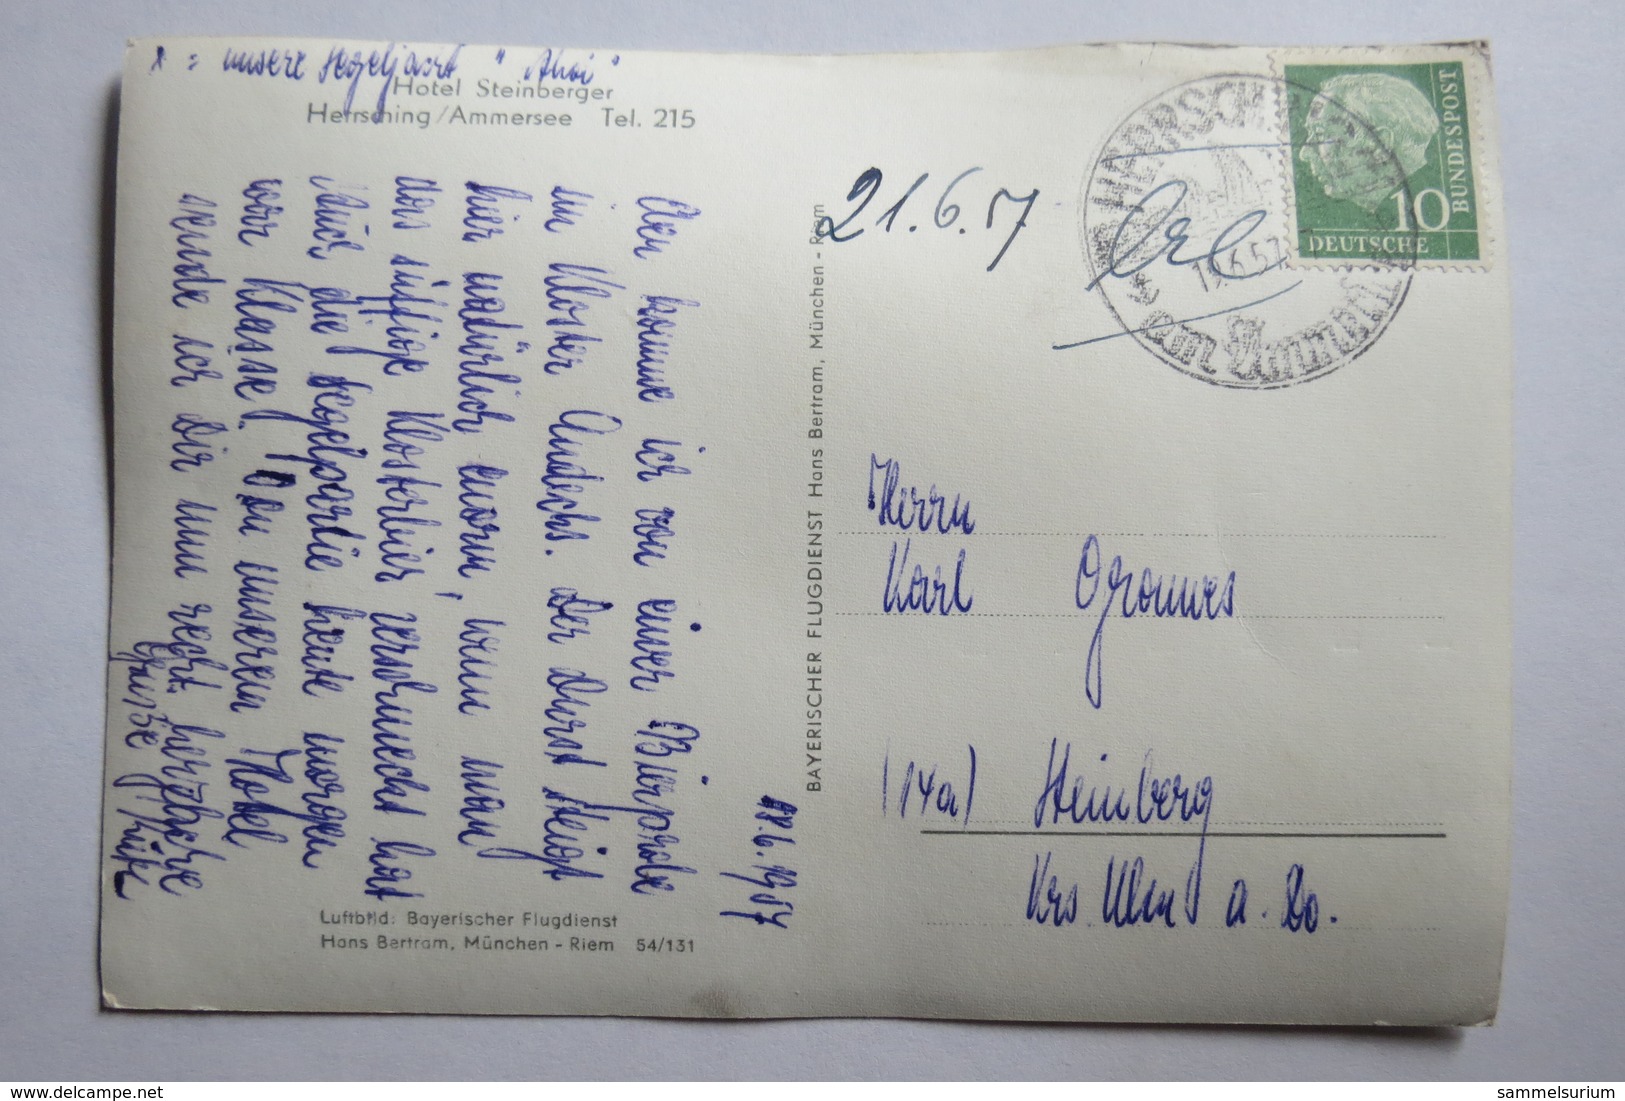 x = unsere Segeljacht "Ahoi"
Hotel Steinberger
Herrsching/Ammersee Tel. 215
18.6.1957
komme ich von einer Bierprobe
in Kloster Andechs. Der Durst steigt
hier natürlich enorm, wenn man
das süffige Klosterbier geschmeckt hat
Auch die Segelpartie heute morgen
war Klasse! Von unserem Hotel
sende ich Dir nun recht herzliche
Grüße
Luftbild: Bayerischer Flugdienst
Hans Bertram, München - Riem 54/131
BAYERISCHER FLUGDIENST Hans Bertram, München - Riem
21.6.57
HERRSCHING
19.6.57
am Ammersee
10
DEUTSCHE
BUNDESPOST
Herrn
Karl
(14a) Steinberg
Krs. Ulm a. Do.
sammelsurium